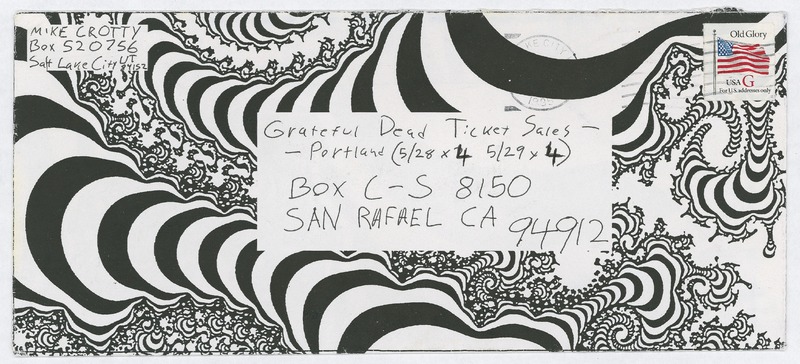 MIKE CROTTY
Box 520756
Salt Lake City UT
84152
KE CITY
1995
Old Glory
USA G
For U.S. addresses only
Grateful Dead Ticket Sales -
- Portland (5/28 x 4 5/29 x 4)
BOX C-S 8150
SAN RAFAEL CA
94912